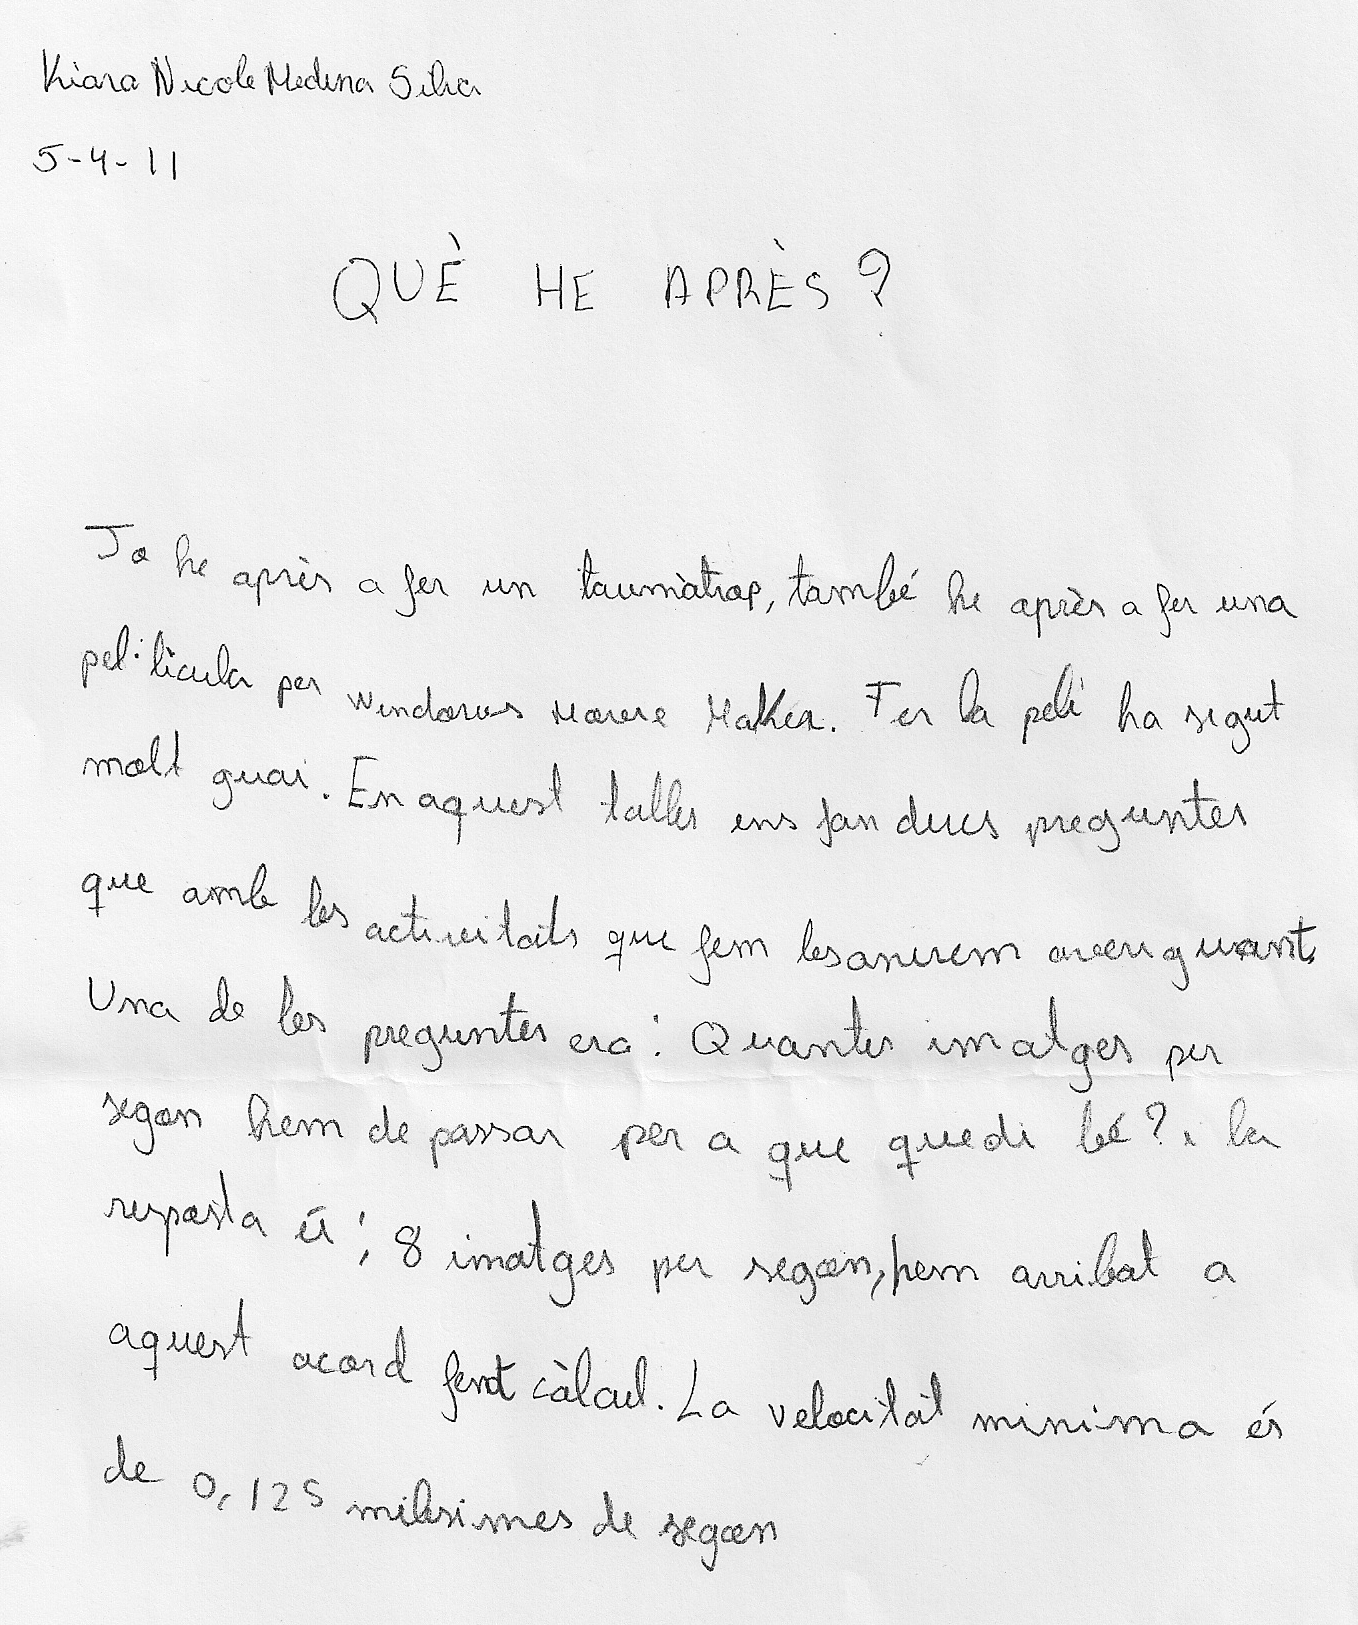 Kiara Nicole Medina Silva
5-4-11
QUÈ HE APRÈS?
Jo he après a fer un taumàtrop, també he après a fer una
pel·lícula per Windows Movie Maker. Fer la peli ha sigut
molt guai. En aquest taller ens fan dues preguntes
que amb les activitats que fem les anirem averiguant.
Una de les preguntes era: Quantes imatges per
segon hem de passar per a que quedi bé? i la
resposta és; 8 imatges per segon, hem arribat a
aquest acord fent càlcul. La velocitat minima és
de 0,125 milesimes de segon